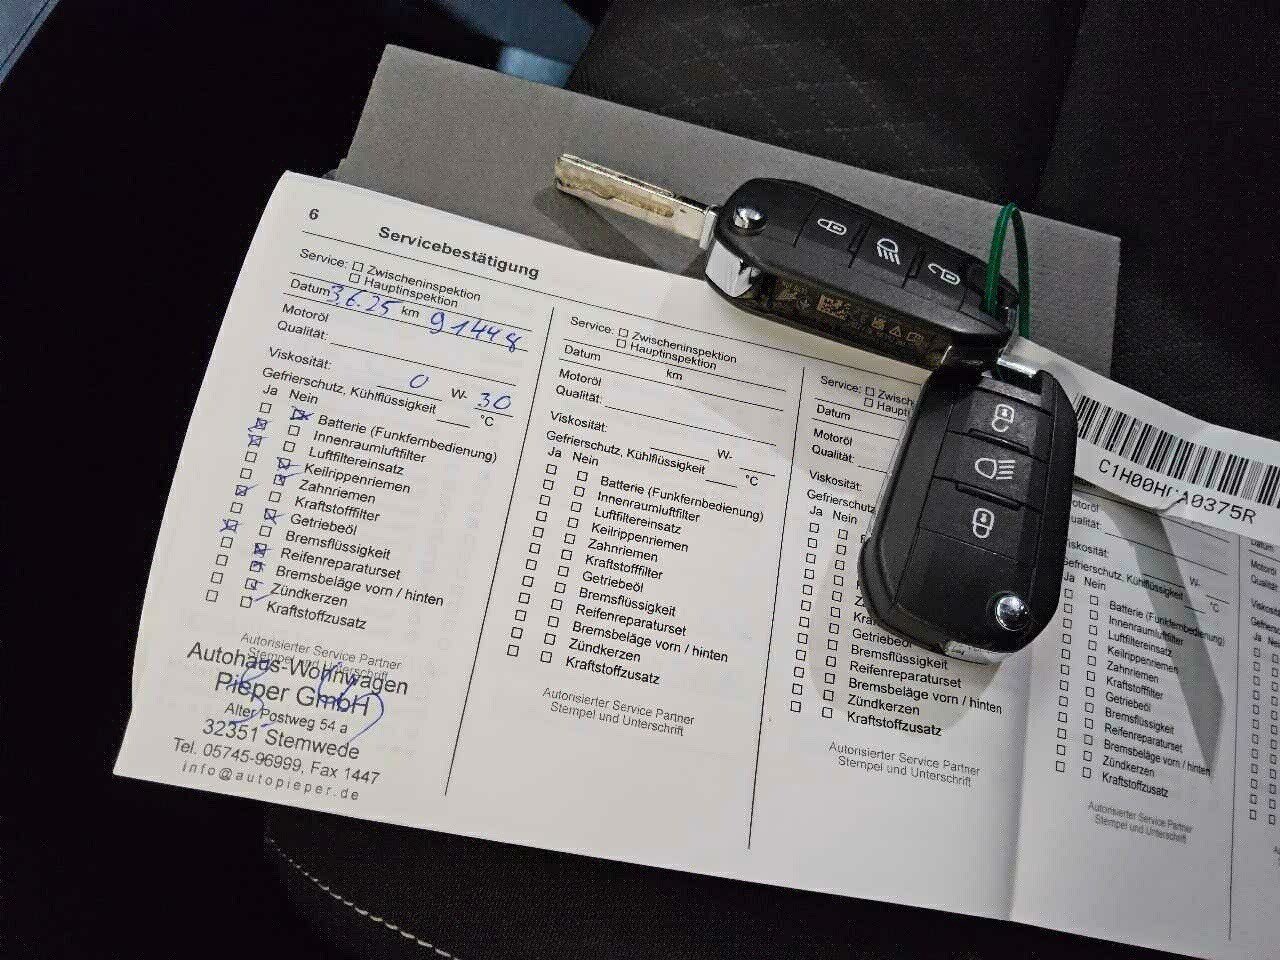 6
Servicebestätigung
Service: ☐ Zwischeninspektion
☐ Hauptinspektion
Datum 3.6.25 km 91448
Motoröl
Qualität:
Viskosität: 0 W- 30
Gefrierschutz, Kühlflüssigkeit °C
Ja Nein
Batterie (Funkfernbedienung)
Innenraumluftfilter
Luftfiltereinsatz
Keilrippenriemen
Zahnriemen
Kraftstofffilter
Getriebeöl
Bremsflüssigkeit
Reifenreparaturset
Bremsbeläge vorn / hinten
Zündkerzen
Kraftstoffzusatz
Autorisierter Service Partner
Stempel und Unterschrift
Autohaus-Wohnwagen
Pieper GmbH
Alter Postweg 54 a
32351 Stemwede
Tel. 05745-96999, Fax 1447
info@autopieper.de
Service: ☐ Zwischeninspektion
☐ Hauptinspektion
Datum km
Motoröl
Qualität:
Viskosität: W-
Gefrierschutz, Kühlflüssigkeit °C
Ja Nein
Batterie (Funkfernbedienung)
Innenraumluftfilter
Luftfiltereinsatz
Keilrippenriemen
Zahnriemen
Kraftstofffilter
Getriebeöl
Bremsflüssigkeit
Reifenreparaturset
Bremsbeläge vorn / hinten
Zündkerzen
Kraftstoffzusatz
Autorisierter Service Partner
Stempel und Unterschrift
Service: ☐ Zwisch
☐ Haupti
Datum
Motoröl
Qualität:
Viskosität:
Gefriers
Ja Nein
Getriebeöl
Bremsflüssigkeit
Reifenreparaturset
Bremsbeläge vorn / hinten
Zündkerzen
Kraftstoffzusatz
Autorisierter Service Partner
Stempel und Unterschrift
Qualität:
Viskosität: W-
Gefrierschutz, Kühlflüssigkeit °C
Ja Nein
Batterie (Funkfernbedienung)
Innenraumluftfilter
Luftfiltereinsatz
Keilrippenriemen
Zahnriemen
Kraftstofffilter
Getriebeöl
Bremsflüssigkeit
Reifenreparaturset
Bremsbeläge vorn / hinten
Zündkerzen
Kraftstoffzusatz
Autorisierter Service Partner
Stempel und Unterschrift